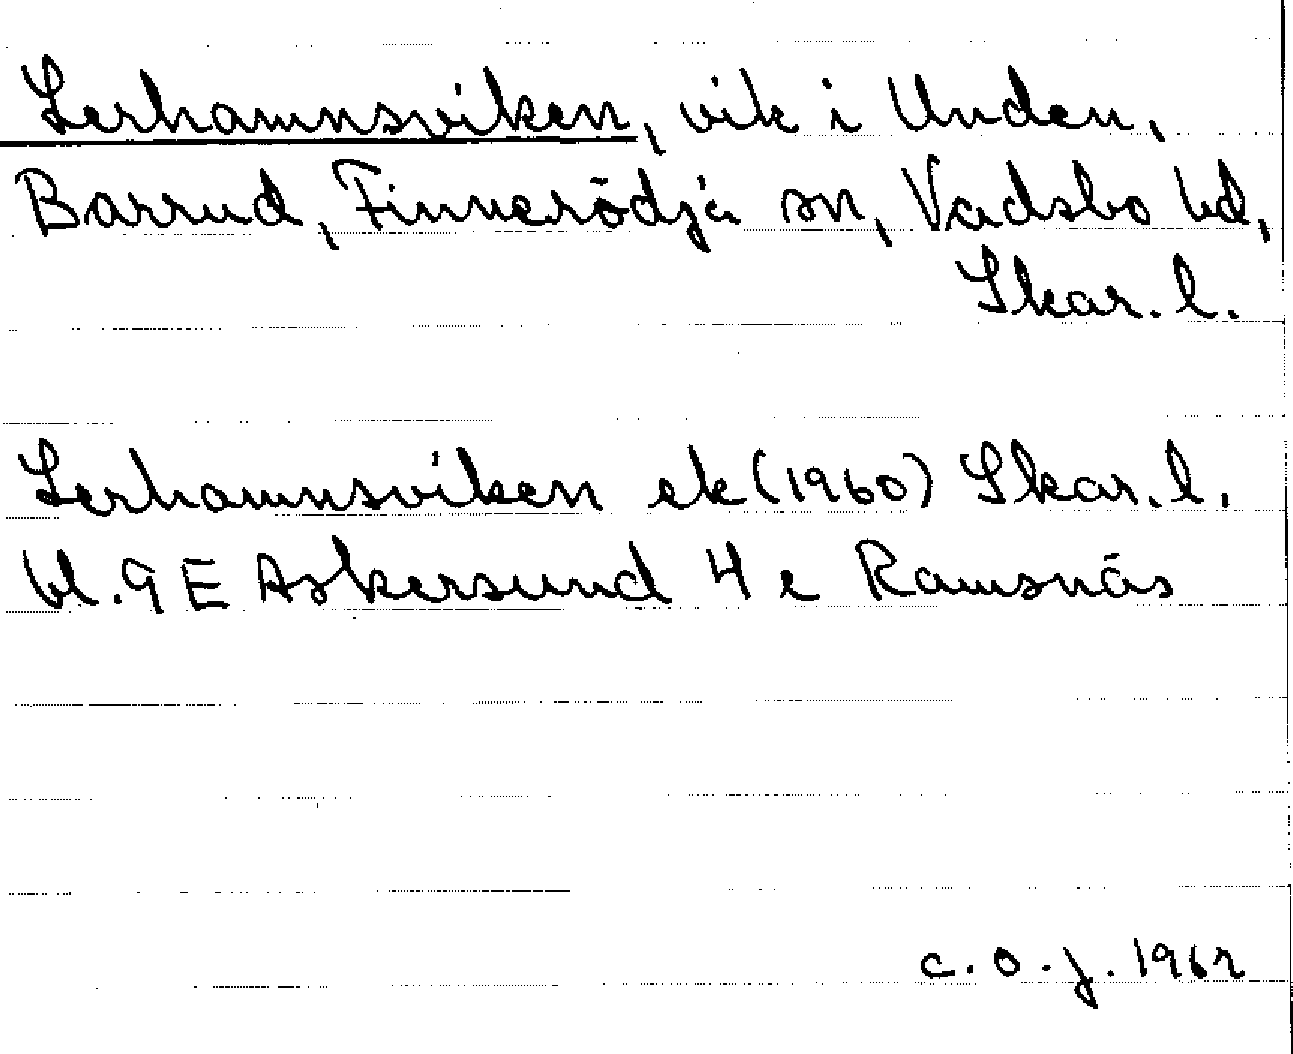 Lerhamnsviken, vik i Unden,
Barrud, Finnerödja sn, Vadsbo hd,
Skar. l.
Lerhamnsviken ek (1960) Skar. l.
bl. 9 E Askersund 4 e Ramsnäs
C. O. J. 1962